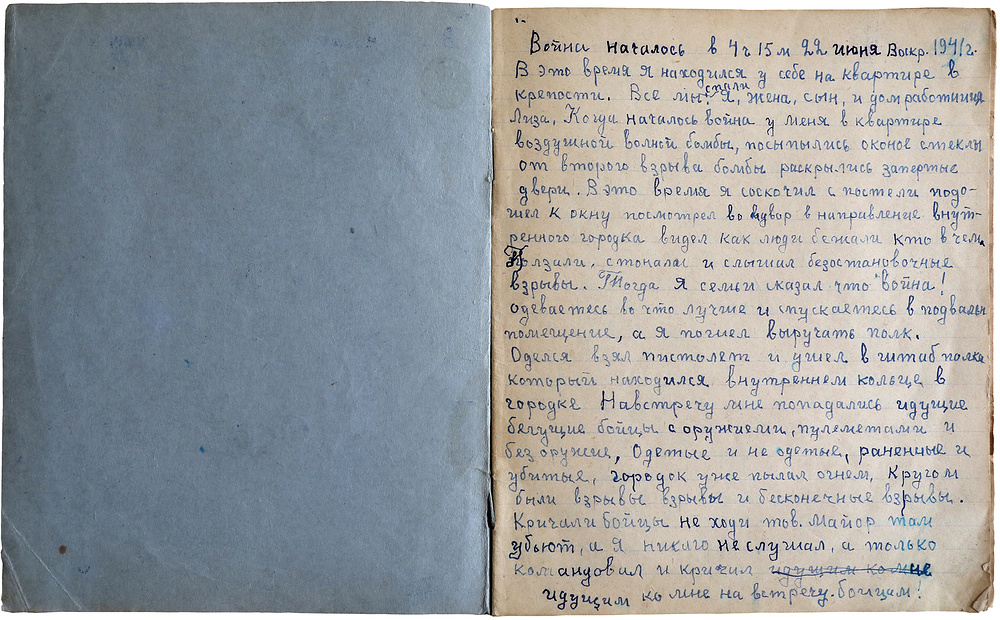 Война началось в 4 ч 15 м 22 июня Воскр. 1941 г.
В это время я находился у себе на квартире в
крепости. Все мы спали. Я, жена, сын, и домработница
Лиза, Когда началось война у меня в квартире
воздушной волной бомбы, посыпылись оконое стеклы
от второго взрыва бомбы раскрылись запертые
двери. В это время я соскочил с постели подо-
шел к окну посмотрел во двор в направление внут-
ренного городка видел как люди бежали кто в чем,
Ползали, стонали и слышал безостановочные
взрывы. Тогда я семьи сказал что "война!
одеваетесь во что лучше и спускаетесь в подвальн
помещение, а я пошел выручать полк.
Оделся взял пистолет и ушел в штаб полка
который находился внутреннем кольце в
городке Навстречу мне попадались идущие
бегущие бойцы с оружиеми, пулеметами и
без оружие, Одетые и не одетые, раненные и
убитые, городок уже пылал огнем, Кругом
были взрывы взрывы и бесконечные взрывы.
Кричали бойцы не ходи тов. Майор там
убьют, а я никаго не слушал, а только
командовал и кричил идущим ко мне
идущим ко мне на встречу бойцам!